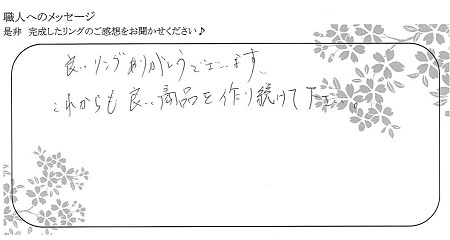 職人へのメッセージ
是非 完成したリングのご感想をお聞かせください♪
良いリングありがとうございます。
これからも良い商品を作り続けて下さい。